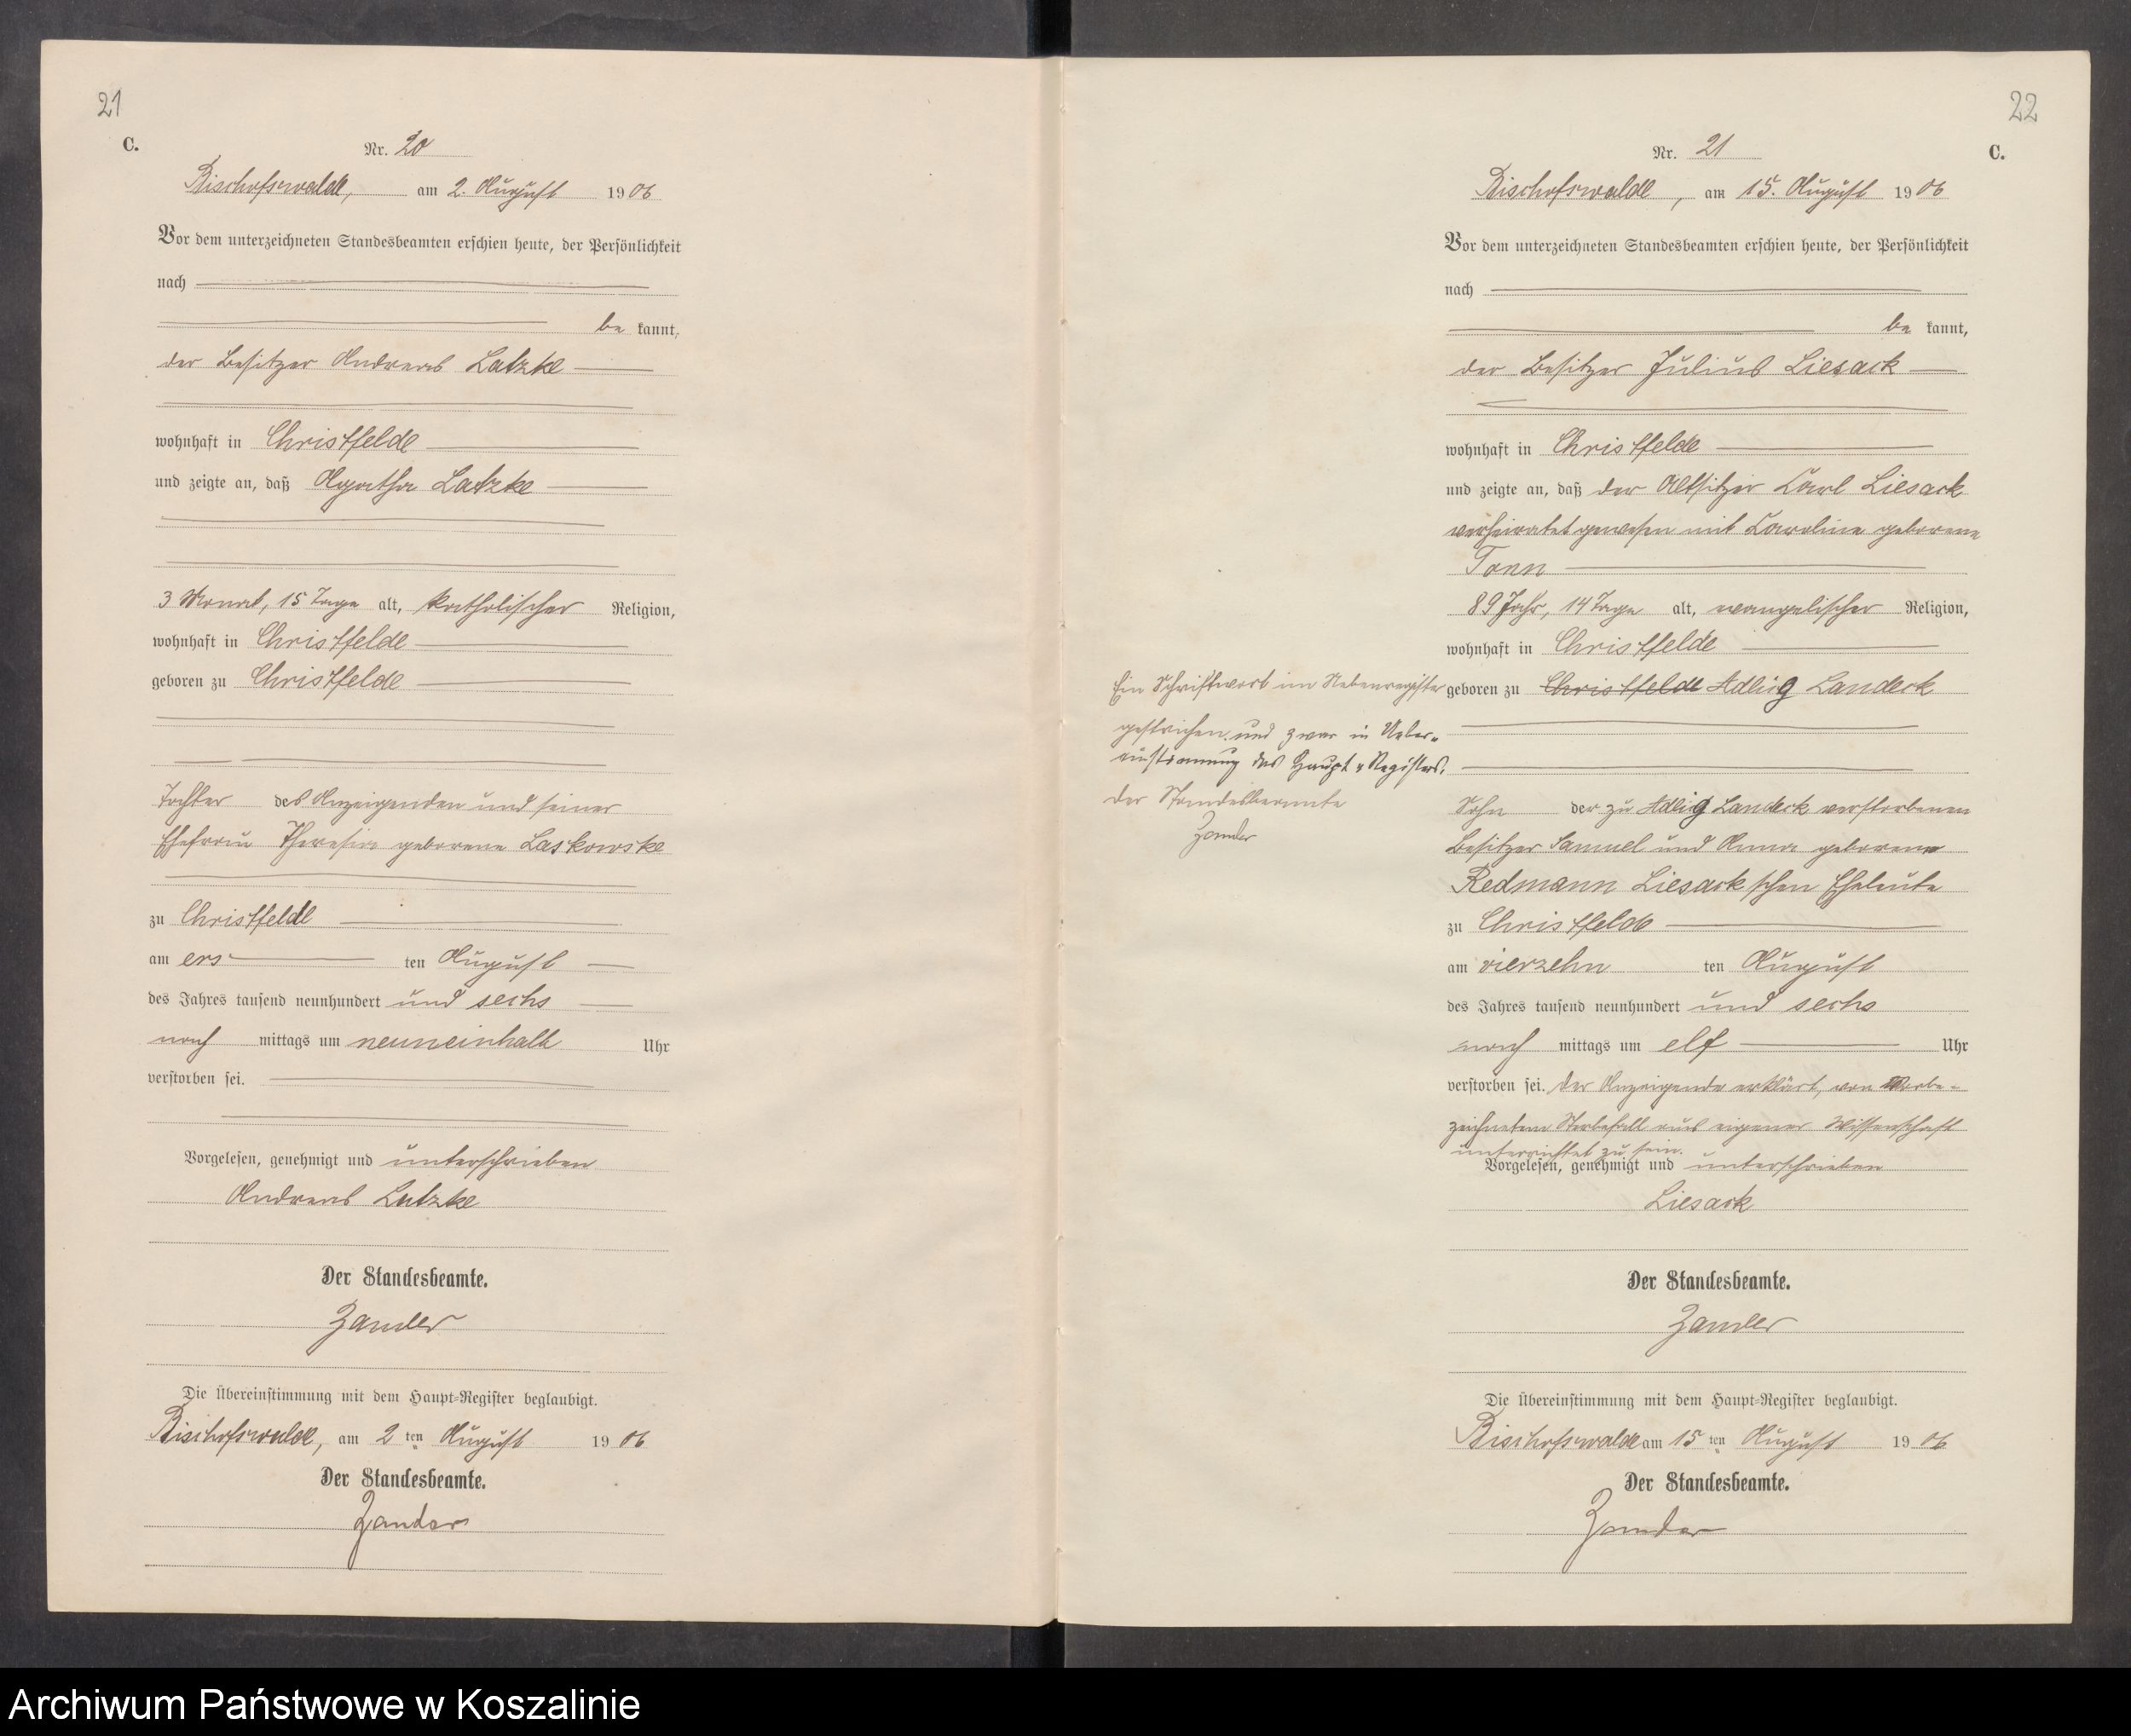 21
C.
Nr. 20
Bischofswalde, am 2. August 1906
Vor dem unterzeichneten Standesbeamten erschien heute, der Persönlichkeit
nach
be kannt,
der Besitzer Andreas Latzke
wohnhaft in Christfelde
und zeigte an, daß Agatha Latzke
3 Monat, 15 Tage alt, katholischer Religion,
wohnhaft in Christfelde
geboren zu Christfelde
Tochter des Anzeigenden und seiner
Ehefrau Theresia geborene Laskowske
zu Christfelde
am ers ten August
des Jahres tausend neunhundert und sechs
nach mittags um neuneinhalb Uhr
verstorben sei.
Vorgelesen, genehmigt und unterschrieben
Andreas Latzke
Der Standesbeamte.
Zander
Die Übereinstimmung mit dem Haupt-Register beglaubigt.
Bischofswalde, am 2 ten August 1906
Der Standesbeamte.
Zander
22
C.
Nr. 21
Bischofswalde, am 15. August 1906
Vor dem unterzeichneten Standesbeamten erschien heute, der Persönlichkeit
nach
be kannt,
der Besitzer Julius Liesack
wohnhaft in Christfelde
und zeigte an, daß der Altsitzer Carl Liesack
verheiratet gewesen mit Caroline geborene
Tonn
89 Jahr, 14 Tage alt, evangelischer Religion,
wohnhaft in Christfelde
geboren zu Christfelde Adlig Landeck
Sohn der zu Adlig Landeck verstorbenen
Besitzer Samuel und Anna geborene
Redmann Liesack'schen Eheleute
zu Christfelde
am vierzehn ten August
des Jahres tausend neunhundert und sechs
nach mittags um elf Uhr
verstorben sei. Der Anzeigende erklärt, von Vorbe-
zeichnetem Sterbefall aus eigener Wissenschaft
unterrichtet zu sein.
Vorgelesen, genehmigt und unterschrieben
Liesack
Der Standesbeamte.
Zander
Die Übereinstimmung mit dem Haupt-Register beglaubigt.
Bischofswalde am 15 ten August 1906
Der Standesbeamte.
Zander
Ein Schriftwort im Nebenregister
gestrichen und zwar in Ueber-
einstimmung des Haupt-Registers.
Der Standesbeamte
Zander
Archiwum Państwowe w Koszalinie